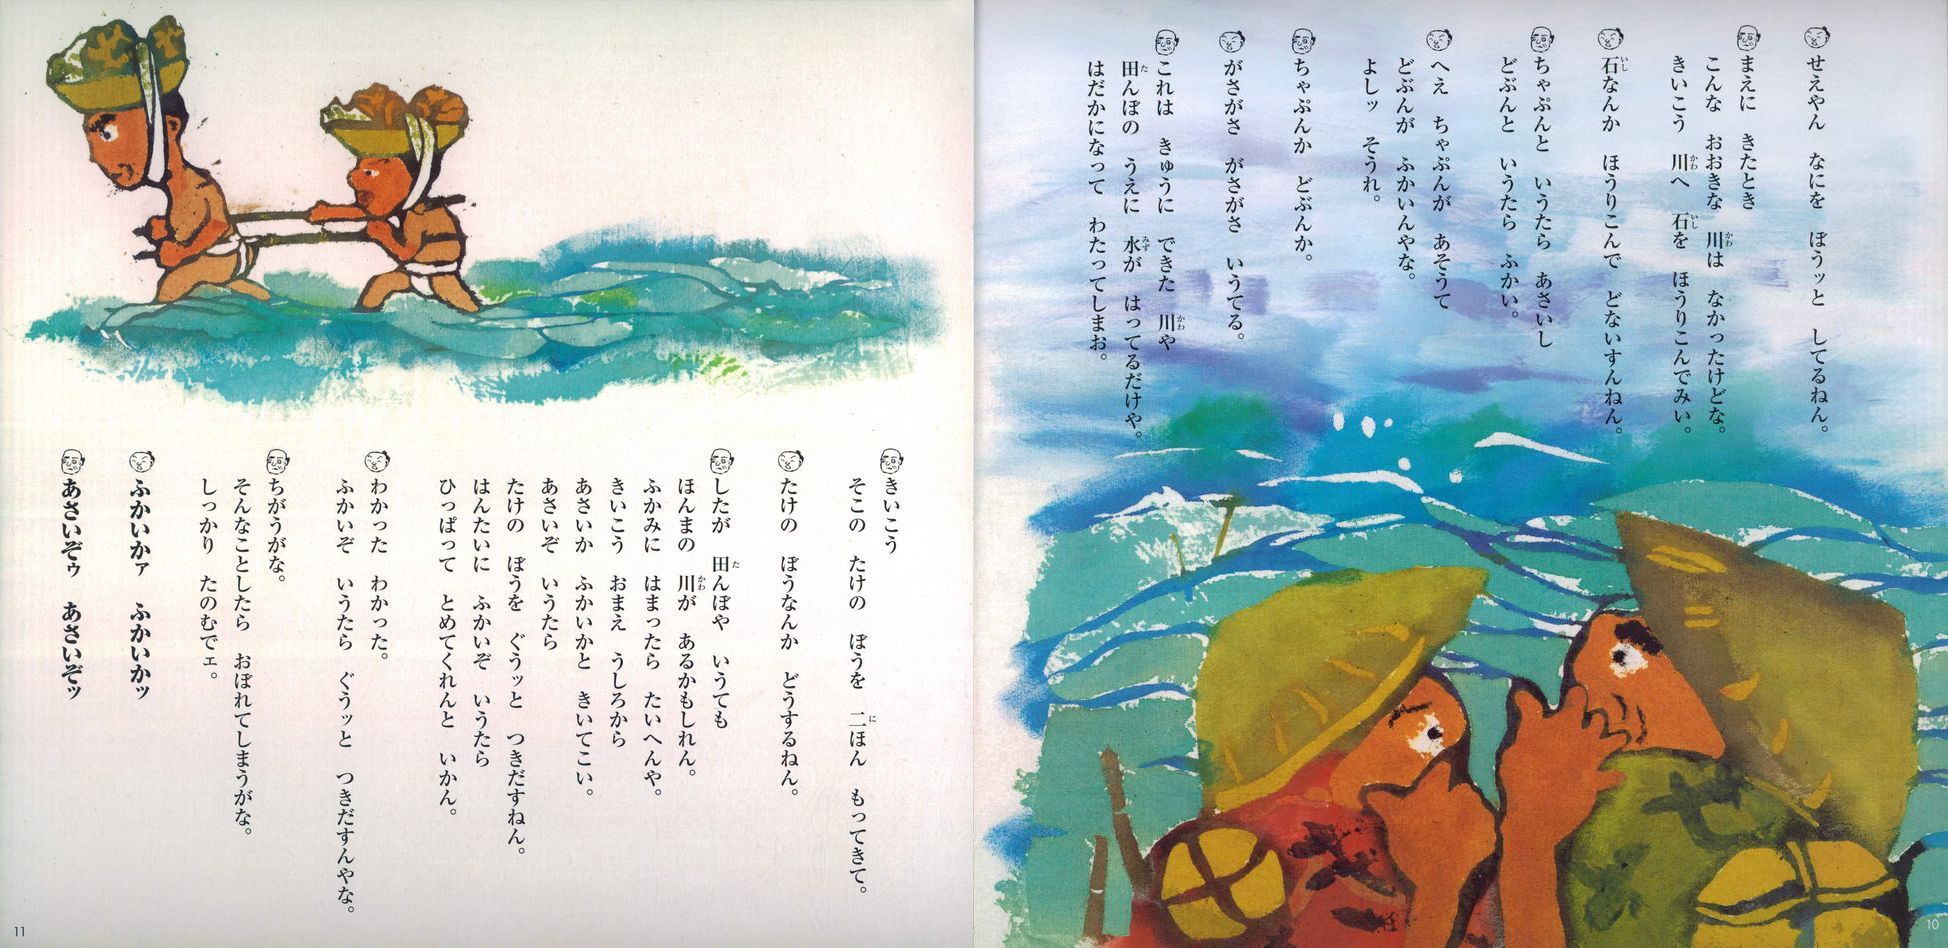 せえやん なにを ぼうッと してるねん。
まえに きたとき
こんな おおきな 川は なかったけどな。
きいこう 川へ 石を ほうりこんでみい。
石なんか ほうりこんで どないすんねん。
ちゃぷんと いうたら あさいし
どぶんと いうたら ふかい。
へえ ちゃぷんが あそうて
どぶんが ふかいんやな。
よしッ そうれ。
ちゃぷんか どぶんか。
がさがさ がさがさ いうてる。
これは きゅうに できた 川や
田んぼの うえに 水が はってるだけや。
はだかになって わたってしまお。
10
きいこう
そこの たけの ぼうを 二ほん もってきて。
たけの ぼうなんか どうするねん。
したが 田んぼや いうても
ほんまの 川が あるかもしれん。
ふかみに はまったら たいへんや。
きいこう おまえ うしろから
あさいか ふかいかと きいてこい。
あさいぞ いうたら
たけの ぼうを ぐうッと つきだすねん。
はんたいに ふかいぞ いうたら
ひっぱって とめてくれんと いかん。
わかった わかった。
ふかいぞ いうたら ぐうッと つきだすんやな。
ちがうがな。
そんなことしたら おぼれてしまうがな。
しっかり たのむでェ。
ふかいかァ ふかいかッ
あさいぞゥ あさいぞッ
11